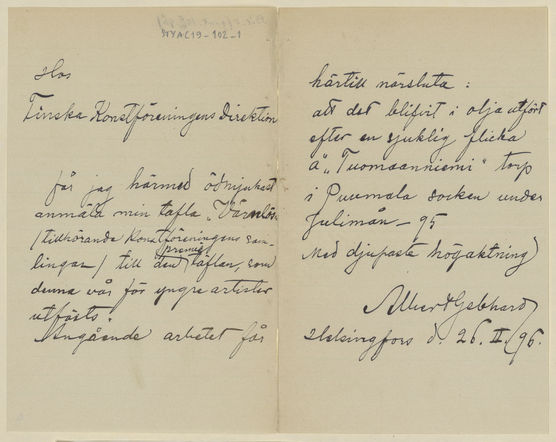 NYAC19-102-1
Hos
Finska Konstföreningens Direktion
får jag härmed ödmjukast
anmäla min tafla "Värnlös"
/tillhörande Konstföreningens sam-
premie
lingar/ till den täflan, som
denna vår för yngre artister
utfästs.
Angående arbetet får
härtill närsluta :
att det blifvit i olja utfört
efter en sjuklig flicka
å "Tuomaanniemi" torp
i Puumala socken under
Juli mån - 95
Med djupaste högaktning
Albert Gebhard
Helsingfors d. 26. II. 96.